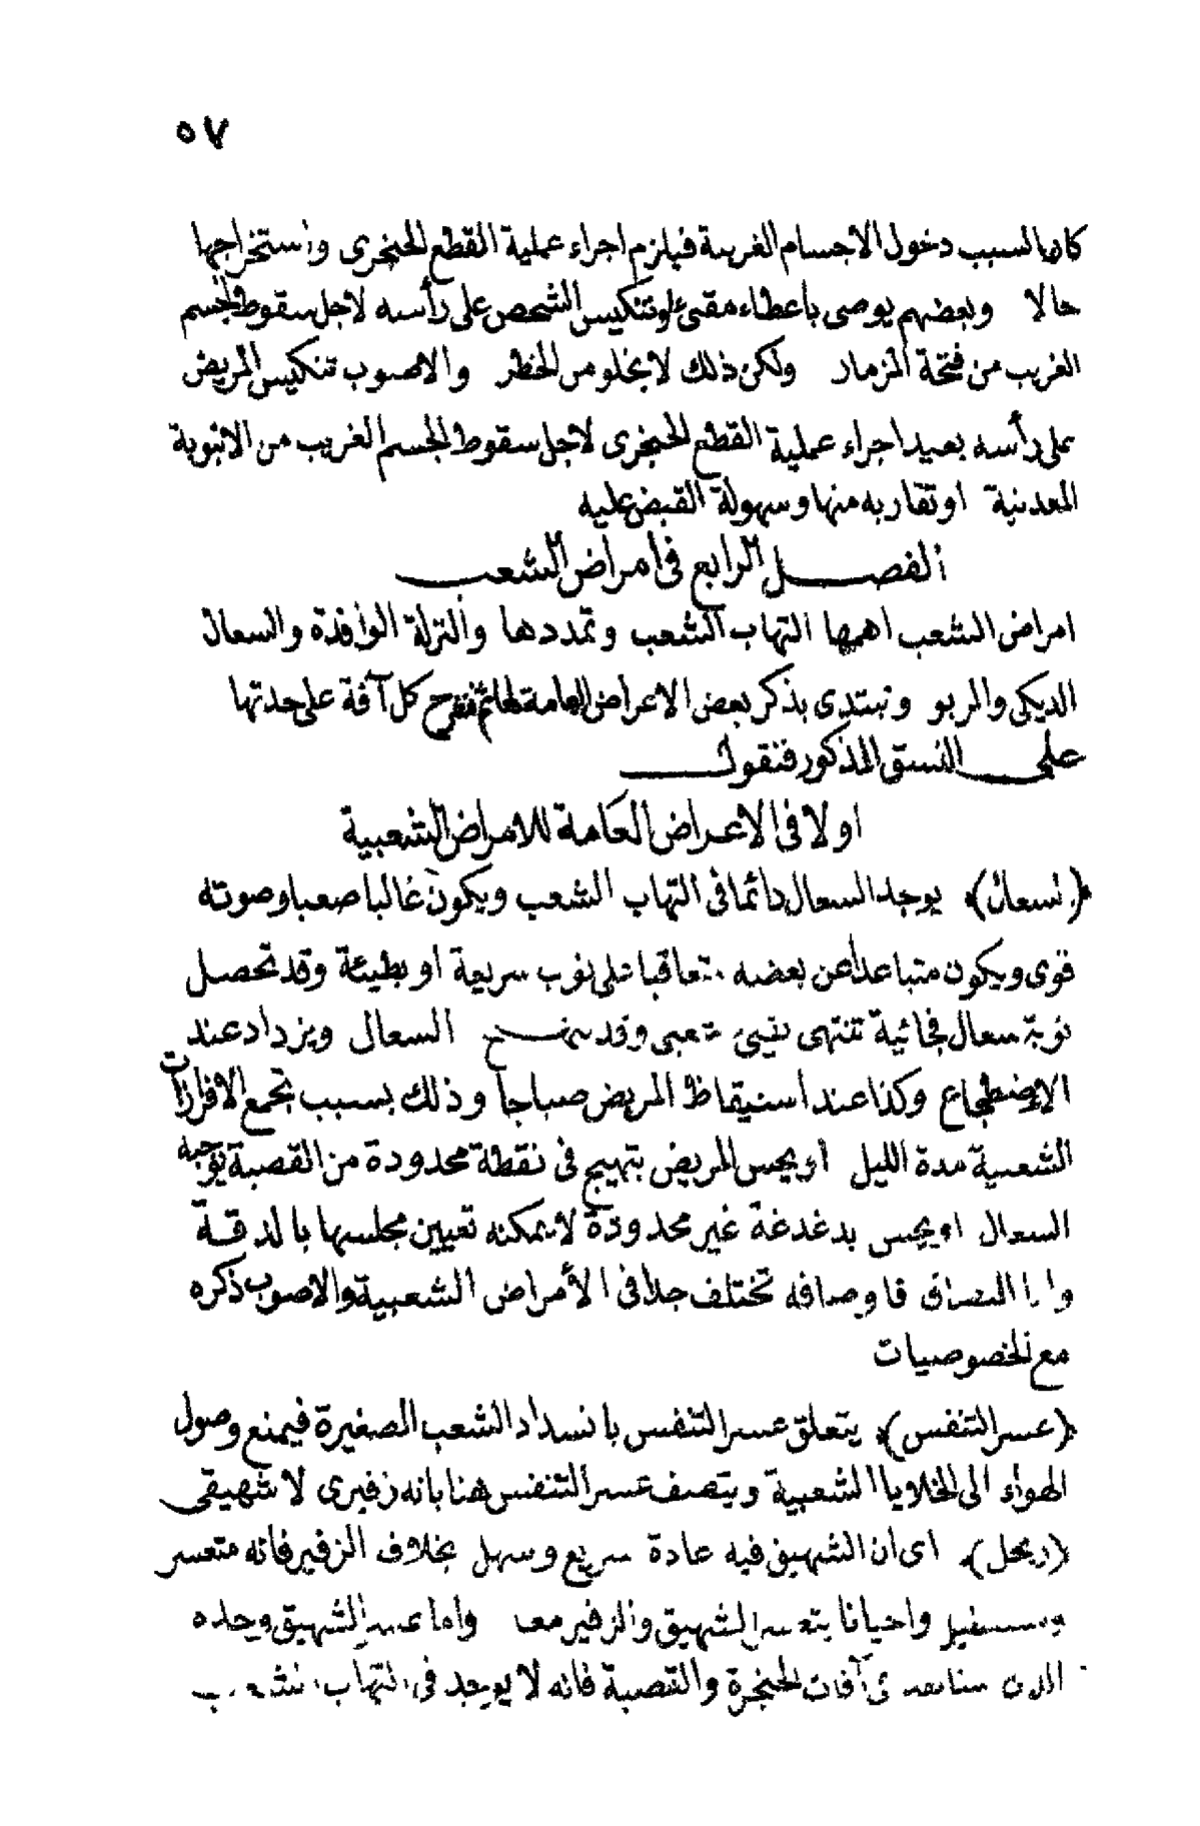 ٥٧
كان السبب دخول الاجسام الغريبة فيلزم اجراء عملية القطع الحنجرى واستخراجها
حالا وبعضهم يوصى باعطاء مقيئ وتنكيس الشخص على رأسه لاجل سقوط الجسم
الغريب من فتحة المزمار ولكن ذلك لا يخلو من الخطر والاصوب تنكيس المريض
على رأسه بعيد اجراء عملية القطع الحنجرى لاجل سقوط الجسم الغريب من الانبوبة
المعدنية او تقاربه منها وسهولة القبض عليه
الفصل الرابع فى امراض الشعب
امراض الشعب اهمها التهاب الشعب وتمددها والنزلة الوافدة والسعال
الديكى والربو ونبتدى بذكر بعض الاعراض العامة لها ثم نشرح كل آفة على حدتها
على النسق المذكور فنقول
اولا فى الاعراض العامة للامراض الشعبية
(السعال) يوجد السعال دائما فى التهاب الشعب ويكون غالبا صعبا وصوته
قوى ويكون متباعدا عن بعضه متعاقبا على نوب سريعة او بطيئة وقد تحصل
نوبة سعال فجائية تنتهى بقيئ وقد السعال ويزداد عند
الاضطجاع وكذا عند استيقاظ المريض صباحا وذلك بسبب تجمع الافرازات
الشعبية مدة الليل او يحس المريض بتهيج فى نقطة محدودة من القصبة توجبه
السعال او يحس بدغدغة غير محدودة لا يمكنه تعيين مجلسها بالدقة
واما البصاق فاوصافه تختلف جدا فى الأمراض الشعبية والاصوب ذكره
مع الخصوصيات
(عسر التنفس) يتعلق عسر التنفس بانسداد الشعب الصغيرة فيمنع وصول
الهواء الى الخلايا الشعبية ويتصف عسر التنفس هنا بانه زفيرى لا شهيقى
اى ان الشهيق فيه عادة سريع وسهل بخلاف الزفير فانه متعسر
واحيانا يتعسر الشهيق والزفير معا واما عسر الشهيق وحده
الذى آفات الحنجرة والقصبة فانه لا يوجد فى التهاب الشعب